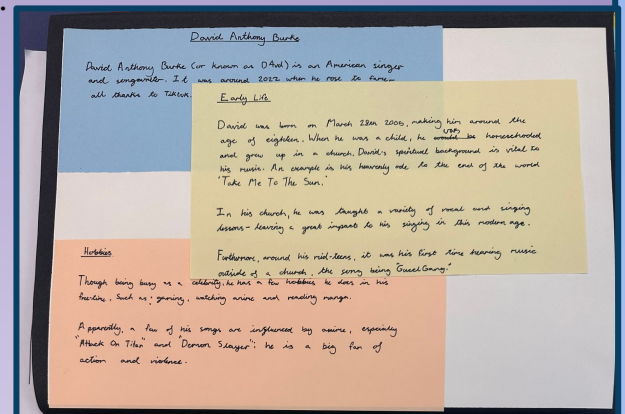 David Anthony Burke
David Anthony Burke (or known as D4vd) is an American singer
and songwriter. It was around 2022 when he rose to fame-
all thanks to Tiktok.
Early Life
David was born on March 28th 2005, making him around the
age of eighteen. When he was a child, he was homeschooled
and grew up in a church. David's spiritual background is vital to
his music. An example is his heavenly ode to the end of the world
'Take Me To The Sun.'
In his church, he was taught a variety of vocal and singing
lessons- leaving a great impact to his singing in this modern age.
Furthermore, around his mid-teens, it was his first time hearing music
outside of a church, the song being "Gucci Gang."
Hobbies
Though being busy as a celebrity, he has a few hobbies he does in his
free-time. Such as; gaming, watching anime and reading manga.
Apparently, a few of his songs are influenced by anime, especially
"Attack On Titan" and "Demon Slayer"; he is a big fan of
action and violence.